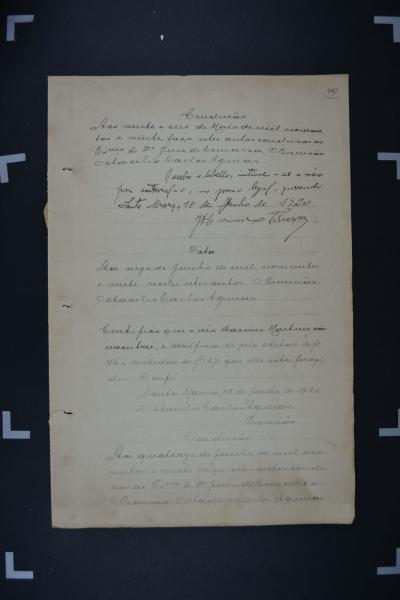 49
Conclusão
Aos vinte e seis de Maio de mil novecen
tos e vinte, faço estes autos conclusos ao
Exmo Sr. Dr. Juiz de Comarca. O Escrivão
Octacilio Carlos Aguiar
Recebo o libello, intime-se o réo
para contrarial-o, no praso legal, querendo.
Santa Maria, 10 de Junho de 1920
Data
Aos onze de Junho de mil novecentos
e vinte recebi estes autos. O Escrivão
Octacilio Carlos Aguiar
Certifico que o réo Martins não
encontrei, e verifica-se pelo edital de f
46 e certidão de fs 47, que elle está foragi
do. Doufé
Santa Maria, 12 de Junho de 1920
Octacilio Carlos Aguiar
Escrivão
Conclusão
Aos quatorze de Junho de mil nove
centos e vinte faço estes autos conclu
sos ao Exmo Sr. Dr. Juiz de Comarca
O Escrivão, Octacilio Carlos Aguiar